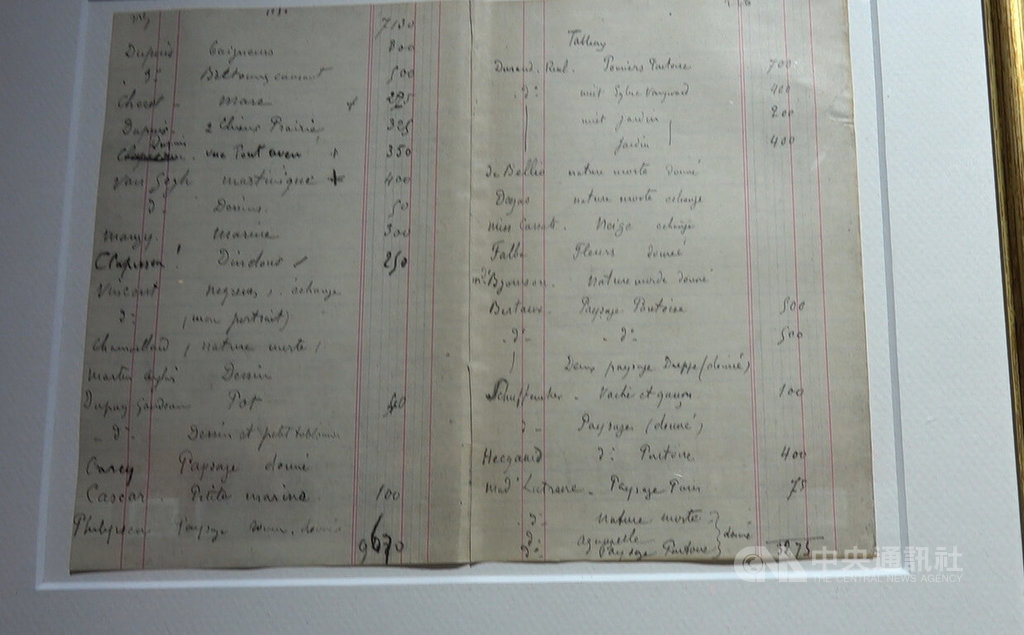 7130
Dupuis Baigneurs 800
d° Bretonne causant 500
Chocat - mare 275
Dupuis - 2 Chiens Prairie 325
Dupuis vue Pont aven + 350
Van Gogh martinique + 400
d° Dessins 50
manzy. marine 300
Clapisson ! Dindons 250
Vincent negresses échange
d° (mon portrait)
Chamaillard (nature morte)
martin Dessin
Dupuy Pot 40
d° Dessin et petit tableau
Carey Paysage donné
Cascar Petite marine 100
Paysage donné
9670
Tableaux
Durand. Ruel. Pontoise 700
d° nuit Sylvie Vaugirard 400
nuit jardin 200
jardin 400
de Bellio nature morte donné
Degas nature morte echange
miss Cassatt. Neige echange
Falbe Fleurs donné
Nature morte donné
Bertaux. Paysage Pontoise 500
d° d° 500
Deux paysage Dieppe (donné)
Schuffenecker - Vache et 100
d° Paysages (donné)
Heegaard d° Pontoise 400
mad° Latrasse. Paysage Paris 75
d° nature morte
d° aquarelle
d° Paysage Pontoise donné 3275
© CNA 中央通訊社
THE CENTRAL NEWS AGENCY